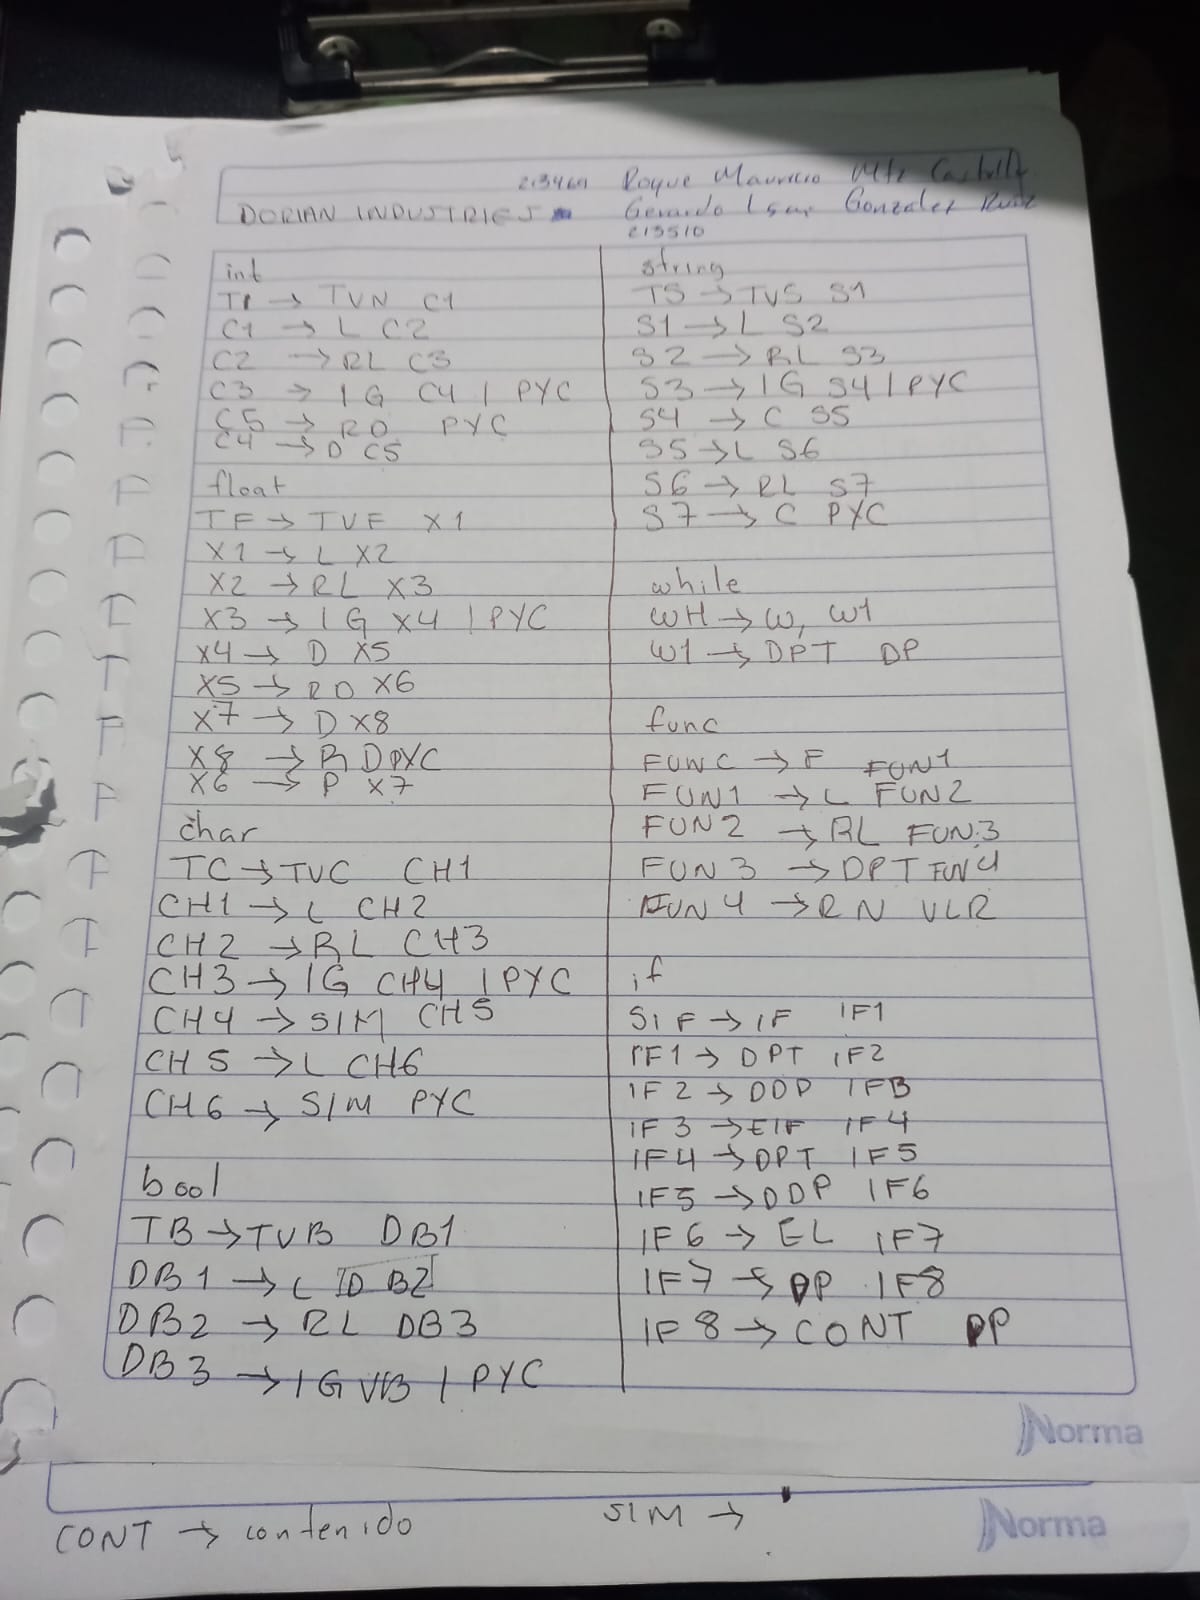 213469 Roque Mauricio Mtz
DORIAN INDUSTRIES
Gerardo Isai Gonzalez Ruiz
213510
int
TI → TVN C1
C1 → L C2
C2 → RL C3
C3 → IG C4 | PYC
C5 → RD PYC
C4 → D C5
float
TF → TVF X1
X1 → L X2
X2 → RL X3
X3 → IG X4 | PYC
X4 → D X5
X5 → RD X6
X7 → D X8
X8 → RD PYC
X6 → P X7
char
TC → TVC CH1
CH1 → L CH2
CH2 → RL CH3
CH3 → IG CH4 | PYC
CH4 → SIM CH5
CH5 → L CH6
CH6 → SIM PYC
bool
TB → TVB DB1
DB1 → L DB2
DB2 → RL DB3
DB3 → IG VB | PYC
string
TS → TVS S1
S1 → L S2
S2 → RL S3
S3 → IG S4 | PYC
S4 → C S5
S5 → L S6
S6 → RL S7
S7 → C PYC
while
WH → W, W1
W1 → DPT DP
func
FUNC → F FUN1
FUN1 → L FUN2
FUN2 → RL FUN3
FUN3 → DPT FUN4
FUN4 → RN VLR
if
SIF → IF IF1
IF1 → DPT IF2
IF2 → DDP IF3
IF3 → EIF IF4
IF4 → DPT IF5
IF5 → DDP IF6
IF6 → EL IF7
IF7 → DP IF8
IF8 → CONT DP
Norma
CONT → contenido
SIM →
Norma